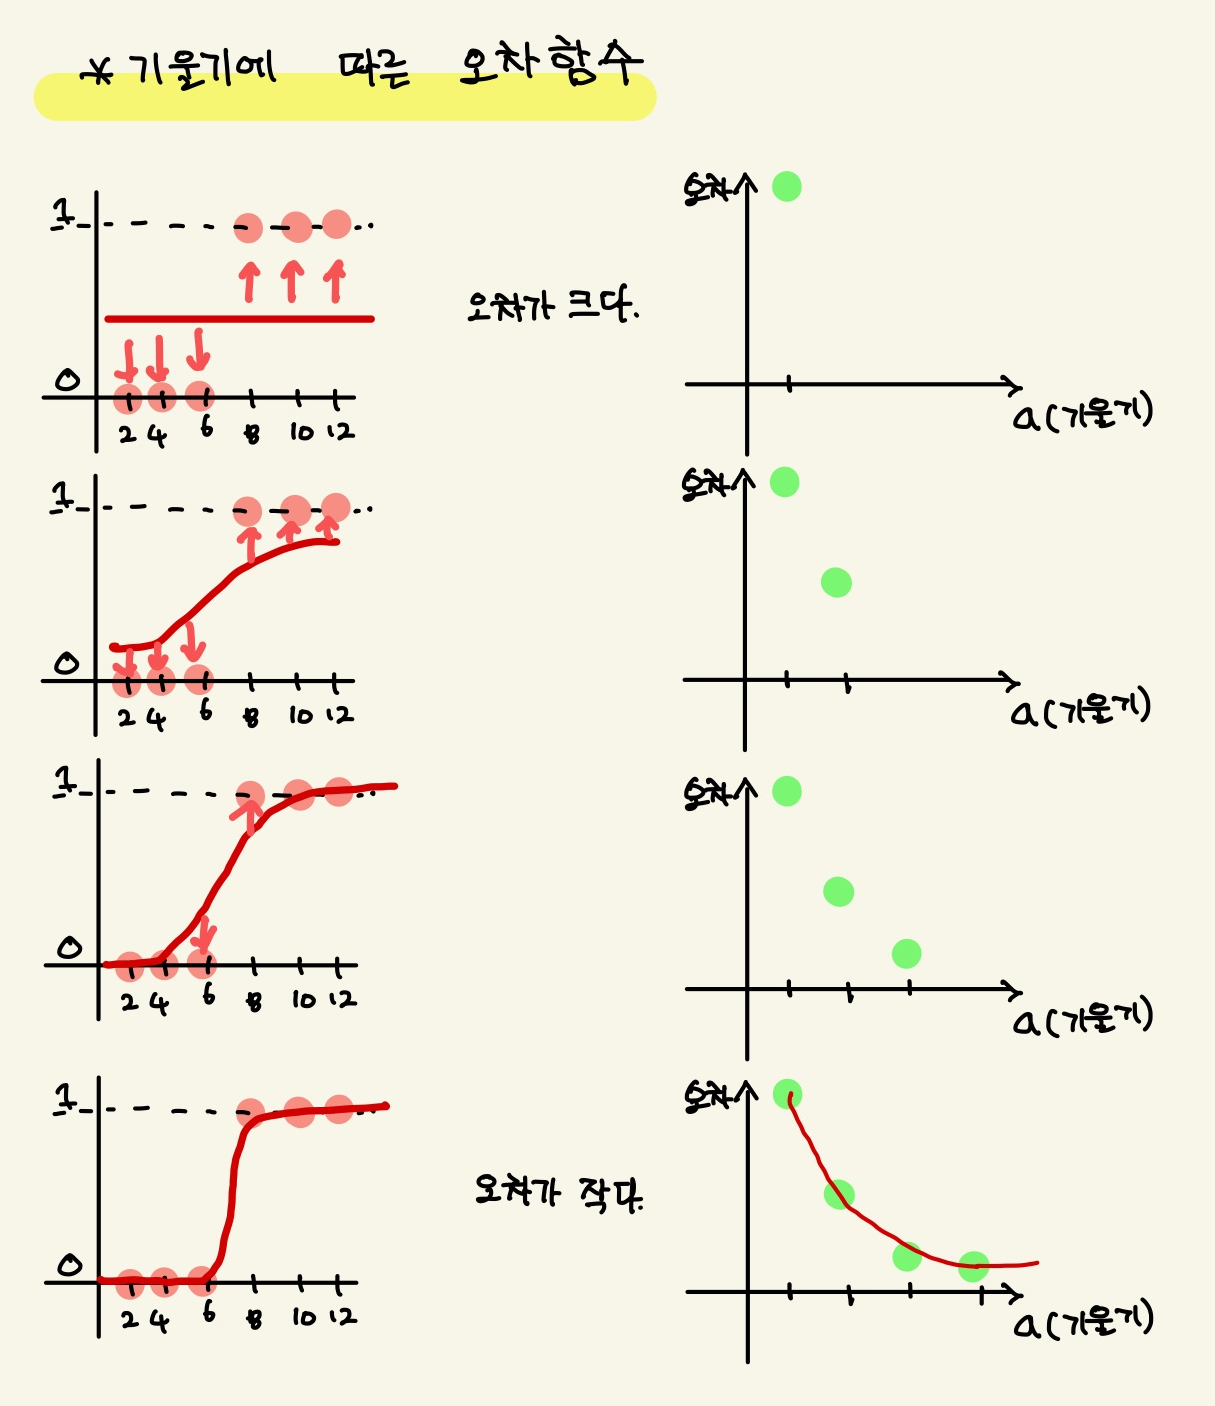 * 기울기에 따른 오차함수
1
0
2 4 6 8 10 12
오차가 크다.
오차
a(기울기)
1
0
2 4 6 8 10 12
오차
a(기울기)
1
0
2 4 6 8 10 12
오차
a(기울기)
1
0
2 4 6 8 10 12
오차가 작다.
오차
a(기울기)